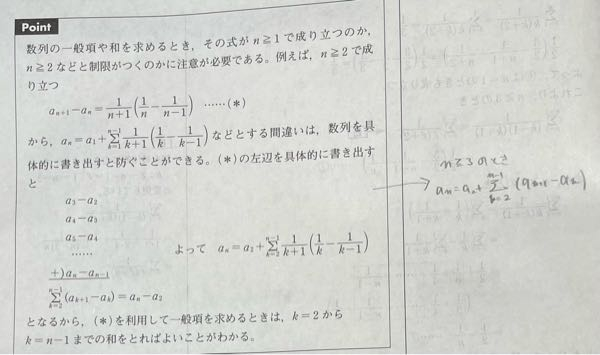 Point
数列の一般項や和を求めるとき，その式が n≧1 で成り立つのか，
n≧2 などと制限がつくのかに注意が必要である。例えば，n≧2 で成
り立つ
a_{n+1}−a_n=\frac{1}{n+1}(\frac{1}{n}−\frac{1}{n−1}) ……(＊)
から，a_n=a_1+\sum_{k=1}^{n−1}\frac{1}{k+1}(\frac{1}{k}−\frac{1}{k−1})などとする間違いは，数列を具
体的に書き出すと防ぐことができる。(＊)の左辺を具体的に書き出す
と
a_3−a_2
a_4−a_3
a_5−a_4
……
+)a_n−a_{n−1}
\sum_{k=2}^{n−1}(a_{k+1}−a_k)=a_n−a_2
よって a_n=a_2+\sum_{k=2}^{n−1}\frac{1}{k+1}(\frac{1}{k}−\frac{1}{k−1})
となるから，(＊)を利用して一般項を求めるときは，k=2 から
k=n−1 までの和をとればよいことがわかる。
n≧3のとき
a_n=a_2+\sum_{k=2}^{n-1}(a_{k+1}-a_k)